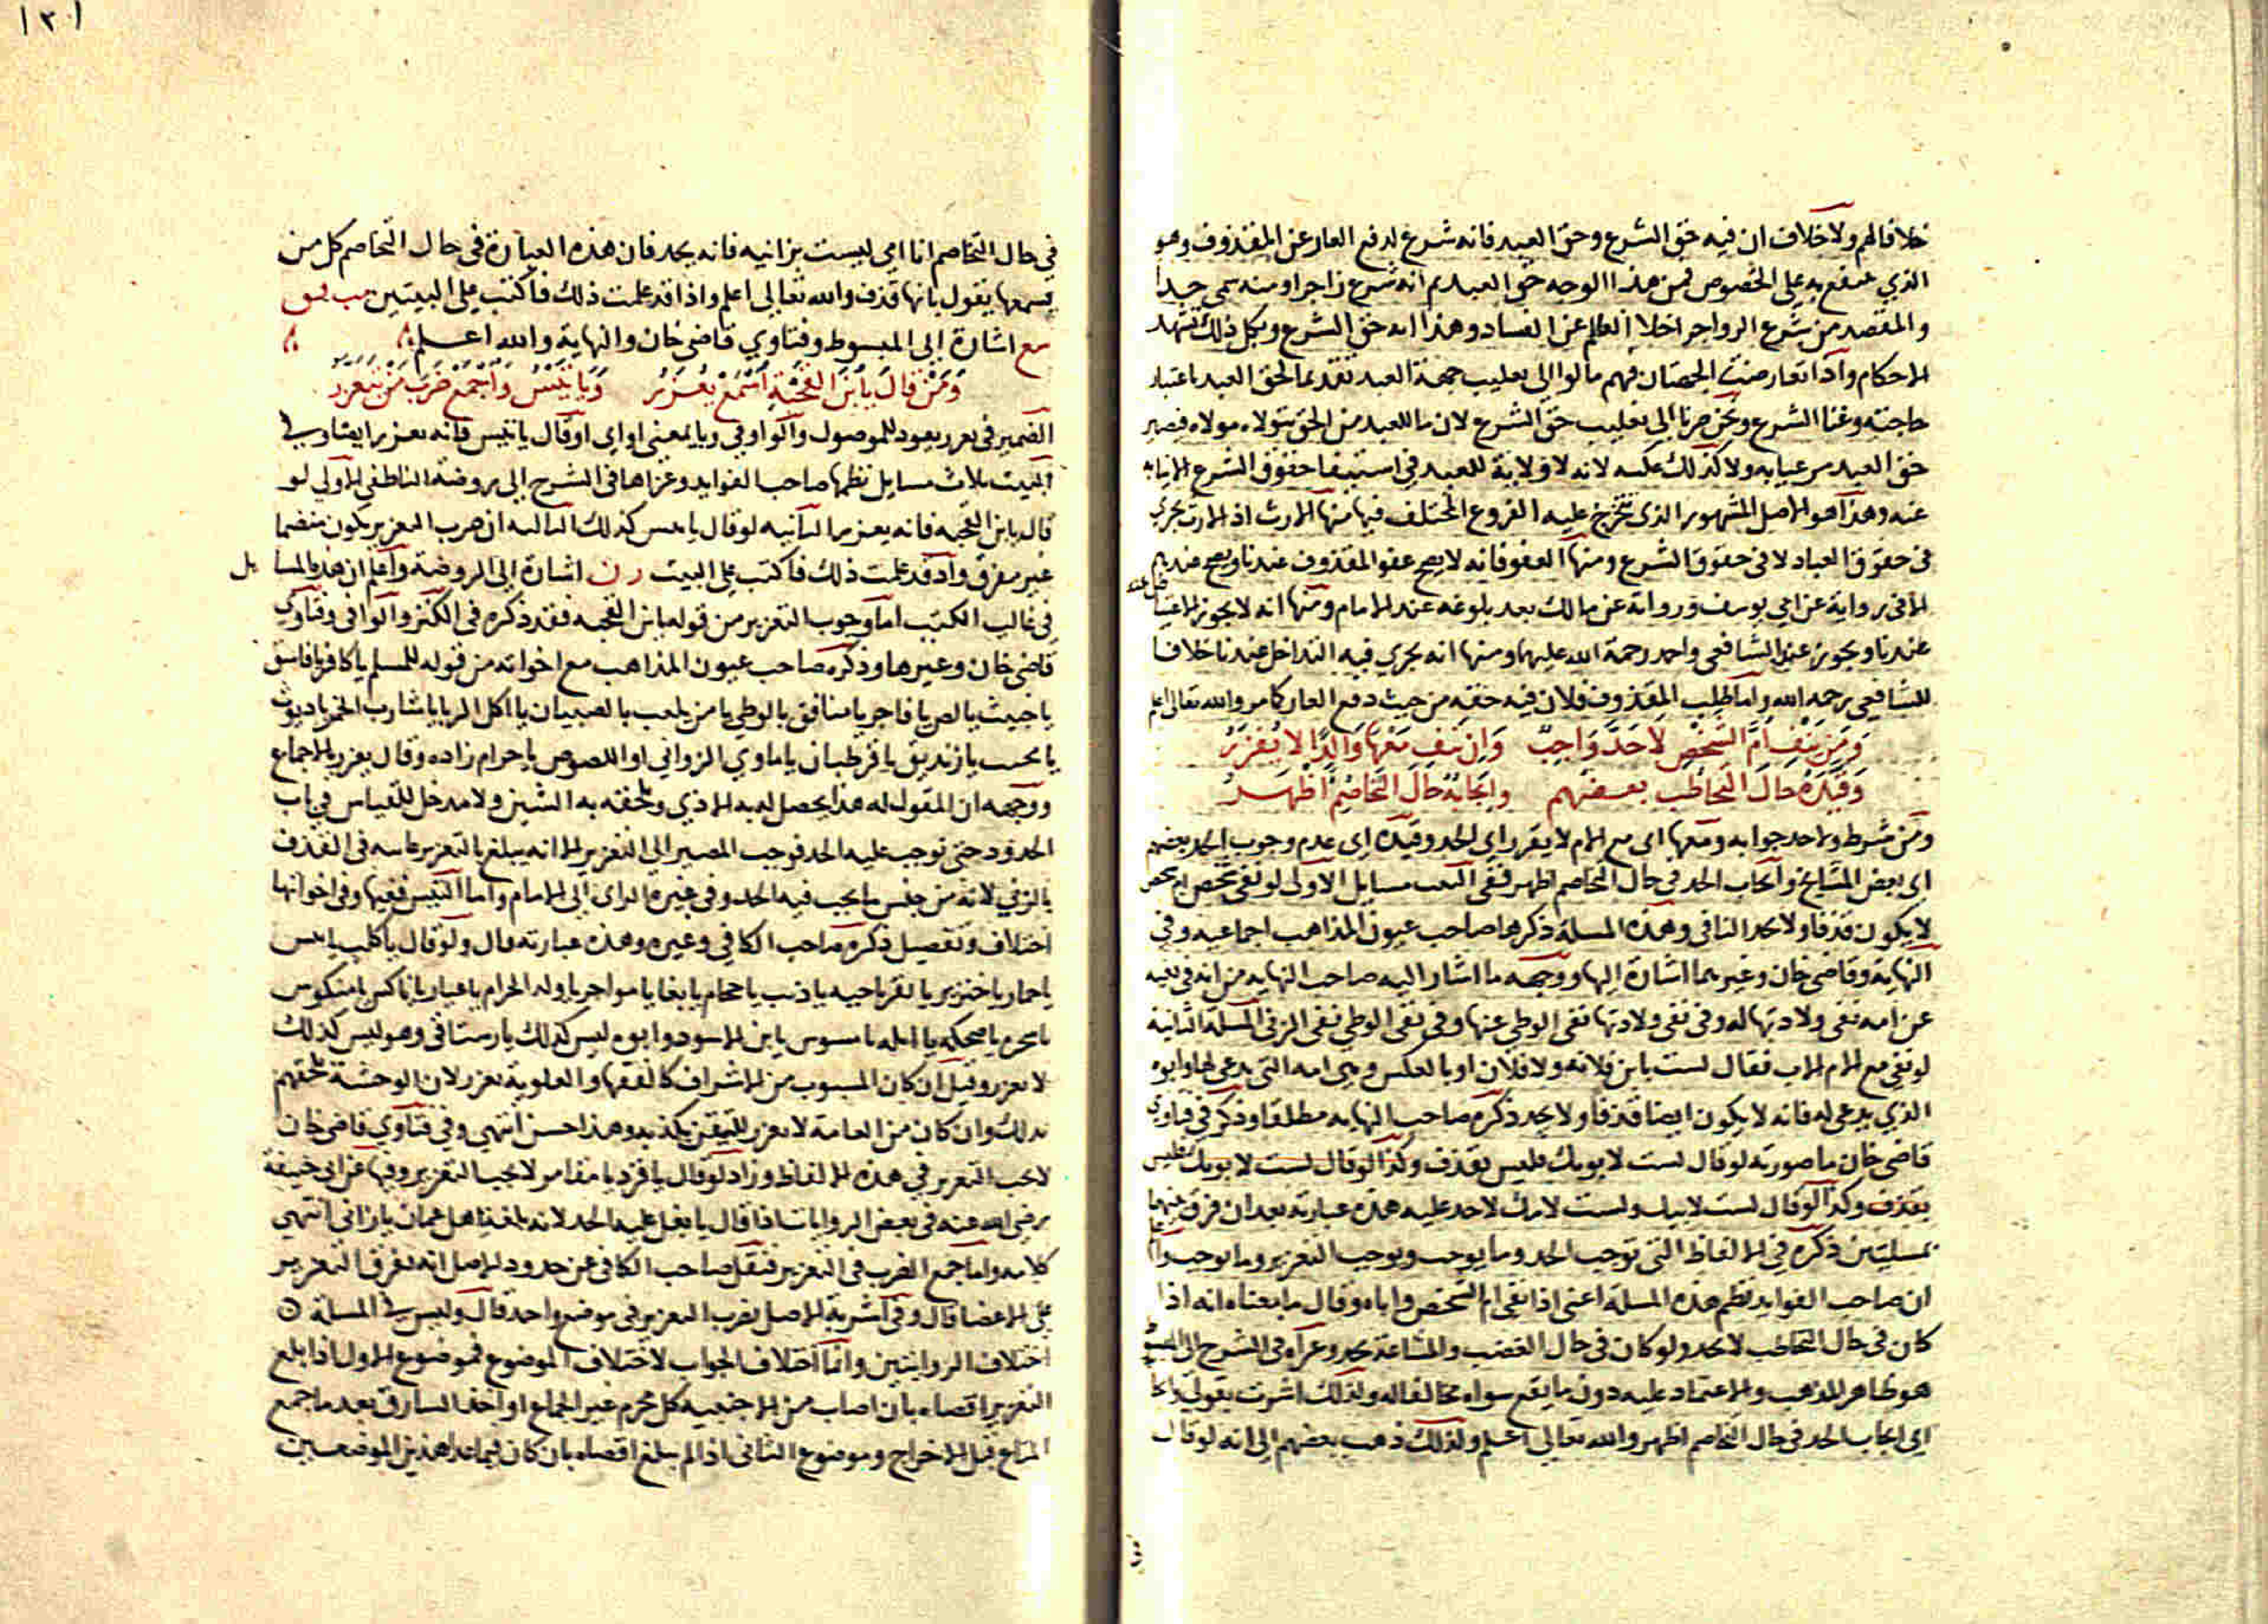 خلافا لهم ولا خلاف ان فيه حق الشرع وحق العبد فانه شرع لدفع العار عن المقذوف وهو
الذي ينتفع به على الخصوص فمن هذا الوجه حق العبد ثم انه شرع زاجرا ومنه سمي حدا
والمقصد من شرع الزواجر اخلا العالم عن الفساد وهذا اية حق الشرع وبكل ذلك تشهد
الاحكام واذا تعارضت الجهتان فهم مالوا الى تغليب جهة العبد تقديما لحق العبد باعتبار
حاجته وغنا الشرع ونحن صرنا الى تغليب حق الشرع لان ما للعبد من الحق يتولاه مولاه فيصير
حق العبد مرعيا به ولا كذلك عكسه لانه لا ولاية للعبد في استيفا حقوق الشرع الا نيابة
عنه وهذا هو الاصل المشهور الذي يتخرج عليه الفروع المختلف فيها منها الارث اذ الارث يجري
في حقوق العباد لا في حقوق الشرع ومنها العفو فانه لا يصح عفو المقذوف عندنا ويصح عندهم
الا في رواية عن ابي يوسف ورواية عن مالك بعد بلوغه عند الامام ومنها انه لا يجوز الاعتياض عنه
عندنا ويجوز عند الشافعي واحمد رحمة الله عليهما ومنها انه يجري فيه التداخل عندنا خلافا
للشافعي رحمه الله واما طلب المقذوف فلان فيه حقه من حيث دفع العار كما مر والله تعالى اعلم
ومن ينف ام الشخص لا حد واجب وان ينف معها والدا لا يعزر
وقيده حال التخاطب بعضهم وايجابه حال التخاصم اظهر
ومن شرط ولا حد جوابه ومعها اي مع الام لا يقرر اي الحد وقيده اي عدم وجوب الحد بعضهم
اي بعض المشايخ وايجاب الحد في حال التخاصم اظهر ففي البيت مسايل الاولى لو نفى شخص ام شخص
لا يكون قذفا ولا يحد النافي وهذه المسلة ذكرها صاحب عيون المذاهب اجماعيه وفي
النهاية وقاضي خان وغيرهما اشارة اليها ووجهه ما اشار اليه صاحب النهايه من انه في نفيه
عن امه نفى ولادتها له وفي نفي ولادتها نفي الوطي عنها وفي نفي الوطي نفي الزنى المسلة الثانية
لو نفى مع الام الاب فقال لست بابن فلانه ولا فلان او بالعكس وهي امه التي يدعى لها وابوه
الذي يدعى له فانه لا يكون ايضا قذفا ولا يحد ذكره صاحب النهايه مطلقا وذكر في فتاوي
قاضي خان ما صورته لو قال لست لابويك فليس بقذف وكذا لو قال لست لابويك فليس
بقذف وكذا لو قال لست لابيك ولست لامك لا حد عليه هذه عبارته بعد ان فرق بينهما
بمسلتين ذكره في الالفاظ التي توجب الحد وما يوجب ويوجب التعزير وما لا يوجب
ان صاحب الفوايد نظم هذه المسلة اعني اذا نفى ام الشخص واباه وقال ما معناه انه اذا
كان في حال التخاطب لا يحد ولو كان في حال الغضب والمشاتمة يحد وعزاه في الشرح الى
هو ظاهر المذهب والاعتماد عليه دون ما يقع سواه مخالفا له ولذلك اشرت بقولي
اي ايجاب الحد في حال التخاصم اظهر والله تعالى اعلم ولذلك ذهب بعضهم الى انه لو قال
١٣١
في حال التخاصم انا امي ليست بزانيه فانه يحد فان هذه العبارة في حال التخاصم كل من
يسمعها يقول بانها قذف والله تعالى اعلم واذا قد علمت ذلك فاكتب على البيتين
مع اشارة الى المبسوط وفتاوي قاضي خان والنهاية والله اعلم
ومن قال يابن القحبة اسمع يعزر ويا تيس واجمع ضرب من يتعزر
الضمير في يعزر يعود للموصول والواو في ويا بمعنى او اي او قال يا تيس فانه يعزر ايضا وفي
البيت ثلاث مسايل نظمها صاحب الفوايد وعزاها في الشرح الى روضة الناطفي الاولى لو
قال يابن القحبه فانه يعزر الثانيه لو قال يا تيس كذلك الثالثه ان ضرب التعزير يكون منضما
غير مفرق واذ قد علمت ذلك فاكتب على البيت رن اشارة الى الروضة واعلم ان هذه المسايل
في غالب الكتب اما وجوب التعزير من قوله يابن القحبه فقد ذكره في الكنز والوافي وفتاوي
قاضي خان وغيرها وذكره صاحب عيون المذاهب مع اخواته من قوله للمسلم يا كافر يا فاسق
يا خبيث يا لص يا فاجر يا منافق يا لوطي يا من يلعب بالصبيان يا اكل الربا يا شارب الخمر يا ديوث
يا مخنث يا زنديق يا قرطبان يا ماوي الزواني او اللصوص يا حرام زاده وقال يعزر بالاجماع
ووجهه ان المقول له هذا يحصل له به الاذي ويلحقه به الشين ولا مدخل للقياس في باب
الحدود حتى توجب عليه الحد فوجب المصير الى التعزير الا انه يبلغ بالتعزير غايته في القذف
بالزني لانه من جنس ما يجب فيه الحد وفي غيره الراي الى الامام واما التيس ففيها وفي اخواتها
اختلاف وتفصيل ذكره صاحب الكافي وغيره وهذه عبارته قال ولو قال يا كلب يا تيس
يا حمار يا خنزير يا بقر يا حيه يا ذيب يا حجام يا بغا يا مواجر يا ولد الحرام يا عيار يا ناكس يا منكوس
يا سخره يا ضحكه يا ابله يا مسوس يا ابن الاسود وابوه ليس كذلك يا رستاقي وهو ليس كذلك
لا يعزر وقيل ان كان المسبوب من الاشراف كالفقها والعلوية يعزر لان الوحشة تلحقهم
بذلك وان كان من العامة لا يعزر للتيقن بكذبه وهذا حسن انتهى وفي فتاوي قاضي خان
لا يجب التعزير في هذه الالفاظ وزاد لو قال يا قرد يا مقامر لا يجب التعزير وفيها عن ابي حنيفة
رضي الله عنه في بعض الروايات اذا قال يا بغل عليه الحد لانه بلغة اهل عمان يا زاني انتهى
كلامه واما جمع الضرب في التعزير فنقل صاحب الكافي عن حدود الاصل انه يفرق التعزير
على الاعضا قال وفي اشربة الاصل يضرب التعزير في موضع واحد قال وليس في المسلة
اختلاف الروايتين وانما اختلاف الجواب لاختلاف الموضوع فموضوع الاول اذا بلغ
التعزير اقصاه بان اصاب من الاجنبيه كل محرم غير الجماع او اخذ السارق بعد ما جمع
المتاع قبل الاخراج وموضوع الثاني اذا لم يبلغ اقصاه بان كان فيما عدا هذين الموضعين